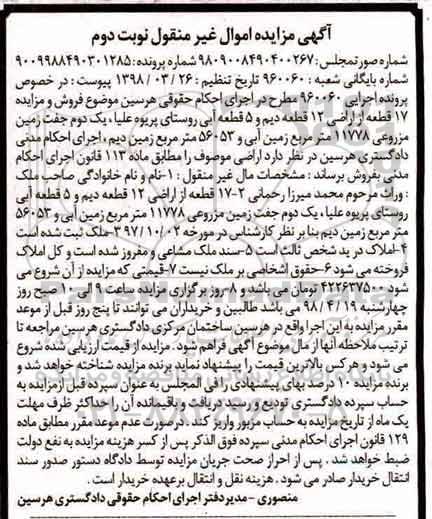 آگهی مزایده اموال غیر منقول نوبت دوم
شماره صورتمجلس: ۹۸۰۹۰۰۸۴۹۰۴۰۰۲۶۷ شماره پرونده: ۹۰۰۹۹۸۸۴۹۰۳۰۱۲۸۵
شماره بایگانی شعبه: ۹۶۰۰۶۰ تاریخ تنظیم: ۱۳۹۸/۰۳/۲۶ پیوست: در خصوص
پرونده اجرایی ۹۶۰۰۶۰ مطرح در اجرای احکام حقوقی هرسین موضوع فروش و مزایده
۱۷ قطعه از اراضی ۱۲ قطعه دیم و ۵ قطعه آبی روستای پریوه علیا، یک دوم جفت زمین
مزروعی ۱۱۷۷۸ متر مربع زمین آبی و ۵۶۰۵۳ متر مربع زمین دیم، اجرای احکام مدنی
دادگستری هرسین در نظر دارد اراضی موصوف را مطابق ماده ۱۱۳ قانون اجرای احکام
مدنی بفروش برساند: مشخصات مال غیر منقول: ۱-نام و نام خانوادگی صاحب ملک
: وراث مرحوم محمد میرزا رحمانی ۲-۱۷ قطعه از اراضی ۱۲ قطعه دیم و ۵ قطعه آبی
روستای پریوه علیا، یک دوم جفت زمین مزروعی ۱۱۷۷۸ متر مربع زمین آبی و ۵۶۰۵۳
متر مربع زمین دیم بنا بر نظر کارشناس در مورخه ۳۹۷/۱۰/۰۲-ملک ثبت شده است
۴-املاک در ید شخص ثالث است ۵-سند ملک مشاعی و مفروز شده است و کل املاک
فروخته می شود ۶-حقوق اشخاصی بر ملک نیست ۷-قیمتی که مزایده از آن شروع می
شود ۴۲۲۶۳۷۵۰۰ تومان می باشد و ۸-روز برگزاری مزایده ساعت ۹ الی ۱۰ صبح روز
چهارشنبه ۹۸/۴/۱۹ می باشد طالبین و خریداران می توانند تا پنج روز قبل از موعد
مقرر مزایده به این اجرا واقع در هرسین ساختمان مرکزی دادگستری هرسین مراجعه تا
ترتیب ملاحظه آنها از مال موضوع آگهی فراهم شود. مزایده از قیمت ارزیابی شده شروع
می شود و هر کس بالاترین قیمت را پیشنهاد نماید برنده مزایده شناخته خواهد شد و
برنده مزایده ۱۰ درصد بهای پیشنهادی را فی المجلس به عنوان سپرده قبل ازمزایده به
حساب سپرده دادگستری تودیع و رسید دریافت و باقیمانده آن را حداکثر ظرف مهلت
یک ماه از تاریخ مزایده به حساب مزبور واریز کند. در صورت عدم موعد مقرر مطابق ماده
۱۲۹ قانون اجرای احکام مدنی سپرده فوق الذکر پس از کسر هزینه مزایده به نفع دولت
ضبط خواهد شد. پس از احراز صحت جریان مزایده توسط دادگاه دستور صدور سند
انتقال خریدار صادر می شود. هزینه نقل و انتقال برعهده خریدار است.
منصوری - مدیر دفتر اجرای احکام حقوقی دادگستری هرسین